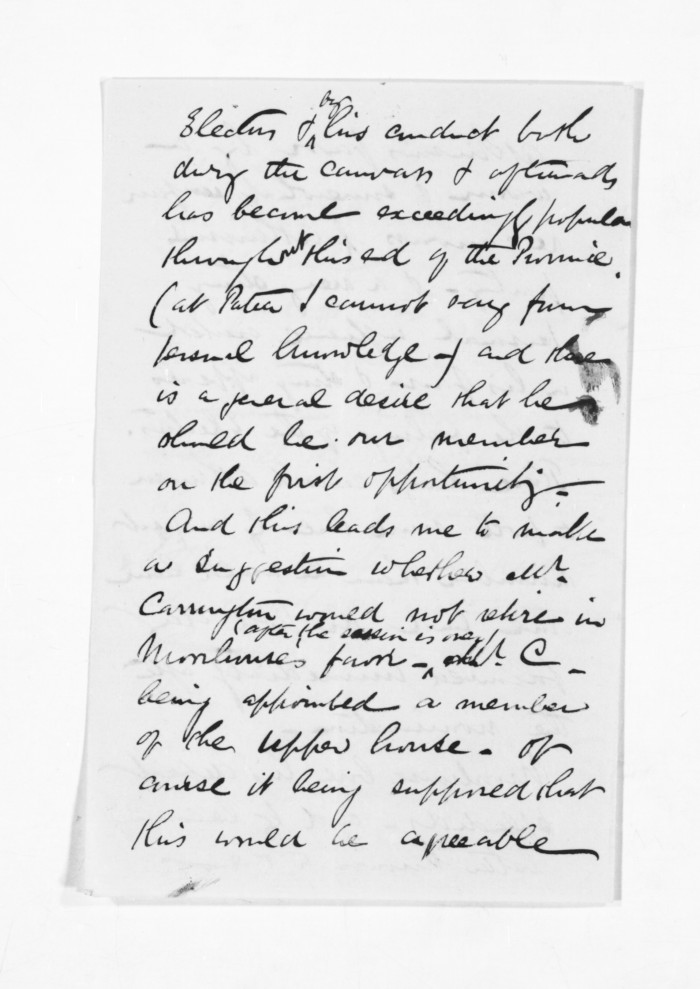 Electors & by his conduct both
during the canvass & afterwards
has become exceedingly popular
throughout this end of the Province.
(at Patea I cannot say from
personal knowledge -) and there
is a general desire that he
should be our member
on the first opportunity -
And this leads me to make
a suggestion whether Mr.
Carrington would not retire in
(after the session is over)
Moorhouses favor - Mr. C -
being appointed a member
of the upper house - of
course it being supposed that
this would be agreeable